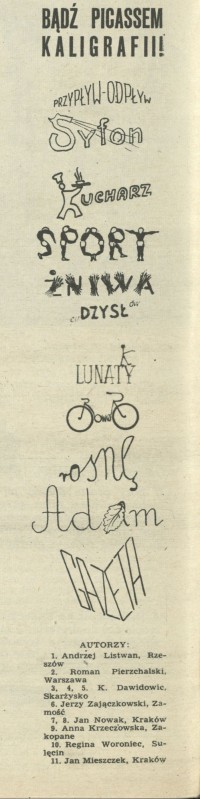 BĄDŹ PICASSEM
KALIGRAFII!
PRZYPŁYW-ODPŁYW
Syfon
KUCHARZ
SPORT
ŻNIWA
DZYSŁ
LUNATYK
rosnę
Adam
GAZETA
AUTORZY:
1. Andrzej Listwan, Rze-
szów
2. Roman Pierzchalski,
Warszawa
3, 4, 5. K. Dawidowic.
Skarżysko
6. Jerzy Zajączkowski, Za-
mość
7, 8. Jan Nowak, Kraków
9. Anna Krzeczowska, Za-
kopane
10. Regina Woroniec, Su-
lęcin
11. Jan Mieszczek, Kraków